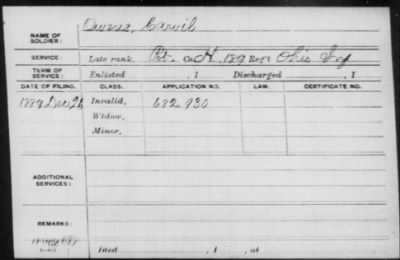 NAME OF SOLDIER: Owens, Carvil
SERVICE: Late rank, Pt. Co. H, 189 Reg't Ohio Inf
TERM OF SERVICE: Enlisted , 1 Discharged , 1
DATE OF FILING. CLASS. APPLICATION NO. LAW. CERTIFICATE NO.
1889 Dec 26 Invalid, 682.930
Widow,
Minor,
ADDITIONAL SERVICES:
REMARKS:
Died , 1 , at